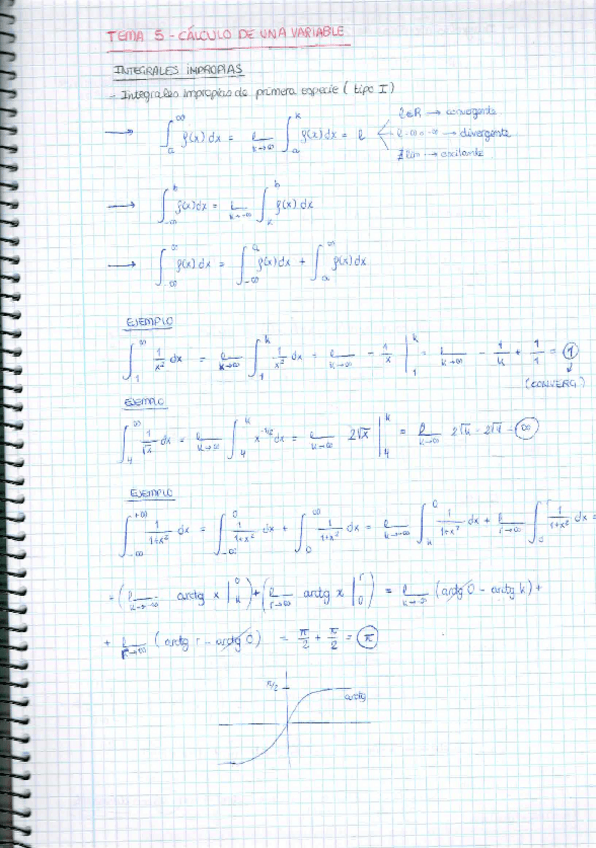 TEMA 5 - CÁLCULO DE UNA VARIABLE
INTEGRALES IMPROPIAS
- Integrales impropias de primera especie ( tipo I )
→ ∫_a^∞ f(x) dx = l_{k→∞} ∫_a^k f(x) dx = l
l∈R → convergente
l = ∞ o -∞ → divergente
∄ lim → oscilante
→ ∫_{-∞}^b f(x) dx = l_{k→-∞} ∫_k^b f(x) dx
→ ∫_{-∞}^∞ f(x) dx = ∫_{-∞}^a f(x) dx + ∫_a^∞ f(x) dx
EJEMPLO
∫_1^∞ 1/x² dx = l_{k→∞} ∫_1^k 1/x² dx = l_{k→∞} - 1/x |_1^k = l_{k→∞} - 1/k + 1/1 = 1
(CONVERG.)
EJEMPLO
∫_4^∞ 1/√x dx = l_{k→∞} ∫_4^k x^{-1/2} dx = l_{k→∞} 2√x |_4^k = l_{k→∞} 2√k - 2√4 = ∞
EJEMPLO
∫_{-∞}^{+∞} 1/(1+x²) dx = ∫_{-∞}^0 1/(1+x²) dx + ∫_0^∞ 1/(1+x²) dx = l_{k→-∞} ∫_k^0 1/(1+x²) dx + l_{r→∞} ∫_0^r 1/(1+x²) dx =
= ( l_{k→-∞} arctg x |_k^0 ) + ( l_{r→∞} arctg x |_0^r ) = l_{k→-∞} (arctg 0 - arctg k) +
+ l_{r→∞} ( arctg r - arctg 0 ) = π/2 + π/2 = π
π/2
arctg